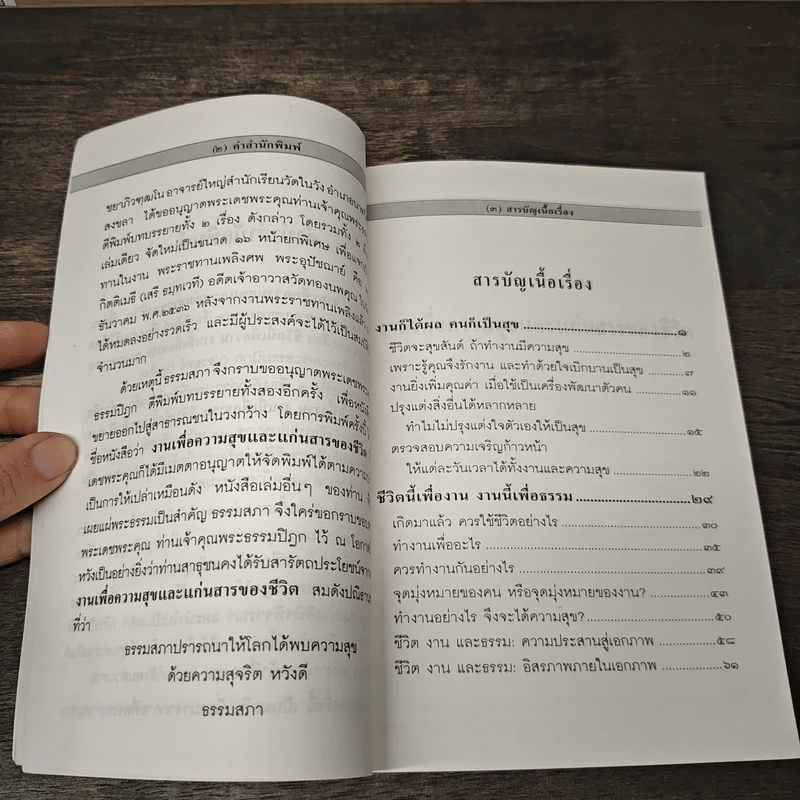 (๒) คำสำนักพิมพ์
ชยาภิวฑฺฒโน อาจารย์ใหญ่สำนักเรียนวัดในวัง อำเภอ
สงขลา ได้ขออนุญาตพระเดชพระคุณท่านเจ้าคุณ
ตีพิมพ์บทบรรยายทั้ง ๒ เรื่อง ดังกล่าว โดยรวมทั้ง ๒
เล่มเดียว จัดใหม่เป็นขนาด ๑๖ หน้ายกพิเศษ เพื่อ
ทานในงาน พระราชทานเพลิงศพ พระอุปัชฌาย์ คือ
กิตติเมธี (เสรี ธมฺมเวที) อดีตเจ้าอาวาสวัดทองนพคุณ
ธันวาคม พ.ศ.๒๕๓๖ หลังจากงานพระราชทานเพลิง
ได้หมดลงอย่างรวดเร็ว และมีผู้ประสงค์จะได้ไว้เป็น
จำนวนมาก
ด้วยเหตุนี้ ธรรมสภา จึงกราบขออนุญาตพระเดช
ธรรมปิฎก ตีพิมพ์บทบรรยายทั้งสองอีกครั้ง เพื่อ
ขยายออกไปสู่สาธารณชนในวงกว้าง โดยการพิมพ์ครั้งนี้
ชื่อหนังสือว่า งานเพื่อความสุขและแก่นสารของชีวิต
เดชพระคุณก็ได้มีเมตตาอนุญาตให้จัดพิมพ์ได้ตาม
เป็นการให้เปล่าเหมือนดัง หนังสือเล่มอื่นๆ ของท่าน
เผยแผ่พระธรรมเป็นสำคัญ ธรรมสภา จึงใคร่ขอกราบ
พระเดชพระคุณ ท่านเจ้าคุณพระธรรมปิฎก ไว้ ณ
หวังเป็นอย่างยิ่งว่าท่านสาธุชนคงได้รับสารัตถประโยชน์จาก
งานเพื่อความสุขและแก่นสารของชีวิต สมดัง
ที่ว่า
ธรรมสภาปรารถนาให้โลกได้พบความสุข
ด้วยความสุจริต หวังดี
ธรรมสภา
(๓) สารบัญเนื้อเรื่อง
สารบัญเนื้อเรื่อง
งานก็ได้ผล คนก็เป็นสุข ..... ๑
ชีวิตจะสุขสันต์ ถ้าทำงานมีความสุข ..... ๒
เพราะรู้คุณจึงรักงาน และทำด้วยใจเบิกบานเป็นสุข ..... ๗
งานยิ่งเพิ่มคุณค่า เมื่อใช้เป็นเครื่องพัฒนาตัวคน ..... ๑๑
ปรุงแต่งสิ่งอื่นได้หลากหลาย
ทำไมไม่ปรุงแต่งใจตัวเองให้เป็นสุข ..... ๑๕
ตรวจสอบความเจริญก้าวหน้า
ให้แต่ละวันเวลาได้ทั้งงานและความสุข ..... ๒๒
ชีวิตนี้เพื่องาน งานนี้เพื่อธรรม ..... ๒๙
เกิดมาแล้ว ควรใช้ชีวิตอย่างไร ..... ๓๐
ทำงานเพื่ออะไร ..... ๓๕
ควรทำงานกันอย่างไร ..... ๓๙
จุดมุ่งหมายของคน หรือจุดมุ่งหมายของงาน? ..... ๔๓
ทำงานอย่างไร จึงจะได้ความสุข? ..... ๕๐
ชีวิต งาน และธรรม: ความประสานสู่เอกภาพ ..... ๕๘
ชีวิต งาน และธรรม: อิสรภาพภายในเอกภาพ ..... ๖๑